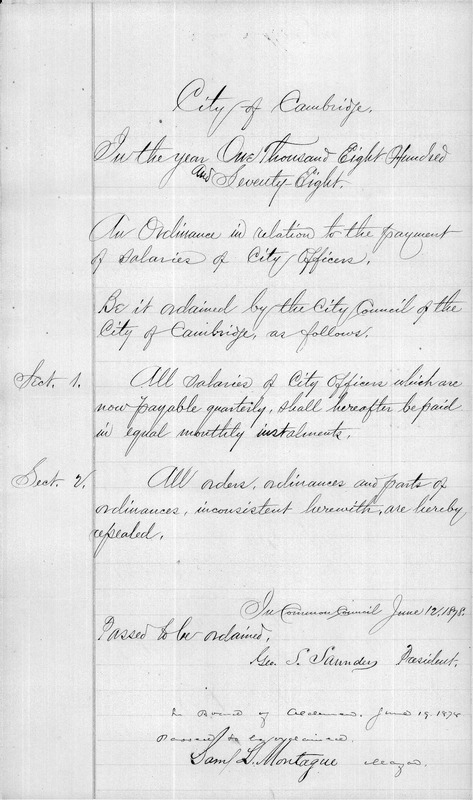 City of Cambridge.
In the year One Thousand Eight Hundred
and Seventy-Eight.
An Ordinance in relation to the payment
of salaries of City Officers.
Be it ordained by the City Council of the
City of Cambridge, as follows.
Sect. 1. All salaries of City Officers which are
now payable quarterly, shall hereafter be paid
in equal monthly instalments.
Sect. 2. All orders, ordinances and parts of
ordinances, inconsistent herewith, are hereby
repealed.
In Common Council June 12, 1878.
Passed to be ordained.
Geo. S. Saunders President.
In Board of Aldermen. June 19. 1878
Passed to be ordained.
Saml L. Montague Mayor.